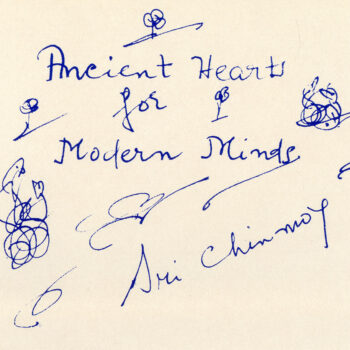 Ancient Hearts
for
Modern Minds
Sri Chinmoy